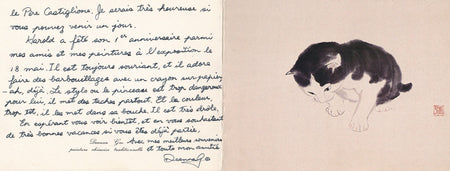 le Père Castiglione. Je serais très heureuse si
vous pouvez venir un jour.
Harold a fêté son 1er anniversaire parmi
mes amis et mes peintures à l'exposition le
18 mai. Il est toujours souriant, et il adore
faire des barbouillages avec un crayon sur papier
— ah, déjà. Le style ou le pinceau est trop dangereux
pour lui, il met des taches partout. Et les couleurs,
trop tôt, il les met dans sa bouche. Il est très drôle.
En espérant vous voir bientôt, et en vous souhaitant
de très bonnes vacances si vous êtes déjà partie,
Avec mes meilleurs souvenirs
Deanna Gao
peinture chinoise traditionnelle
et toute mon amitié
Deanna Gao